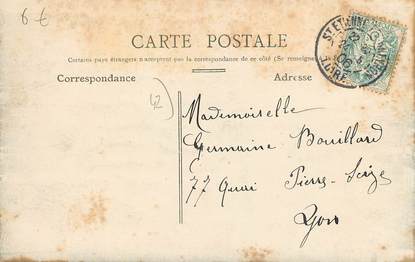 6 €
CARTE POSTALE
Certains pays étrangers n'acceptent pas la correspondance de ce côté (Se renseigner
Correspondance
Adresse
42
ST ETIENNE
LOIRE
Mademoiselle
Germaine Bouillard
77 Quai Pierre-Scize
Lyon